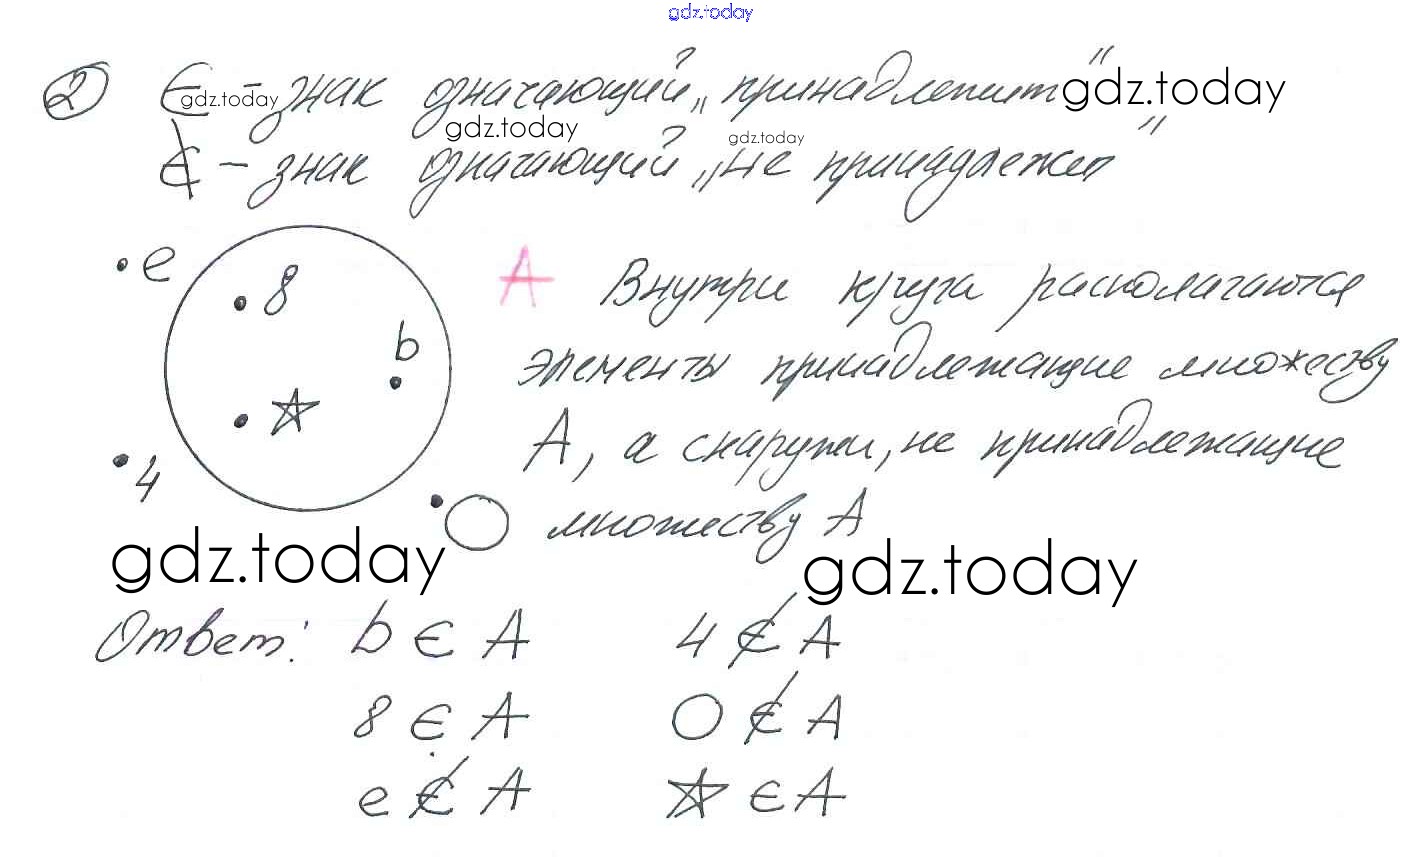 gdz.today
② ∈ - знак означающий „принадлежит" gdz.today
gdz.today
gdz.today gdz.today
∉ - знак означающий „не принадлежит"
e 8 A Внутри круга располагаются
b элементы принадлежащие множеству
☆ А, а снаружи, не принадлежащие
4 ○ множеству А
gdz.today gdz.today
Ответ: b ∈ A 4 ∉ A
8 ∈ A ○ ∉ A
e ∉ A ☆ ∈ A